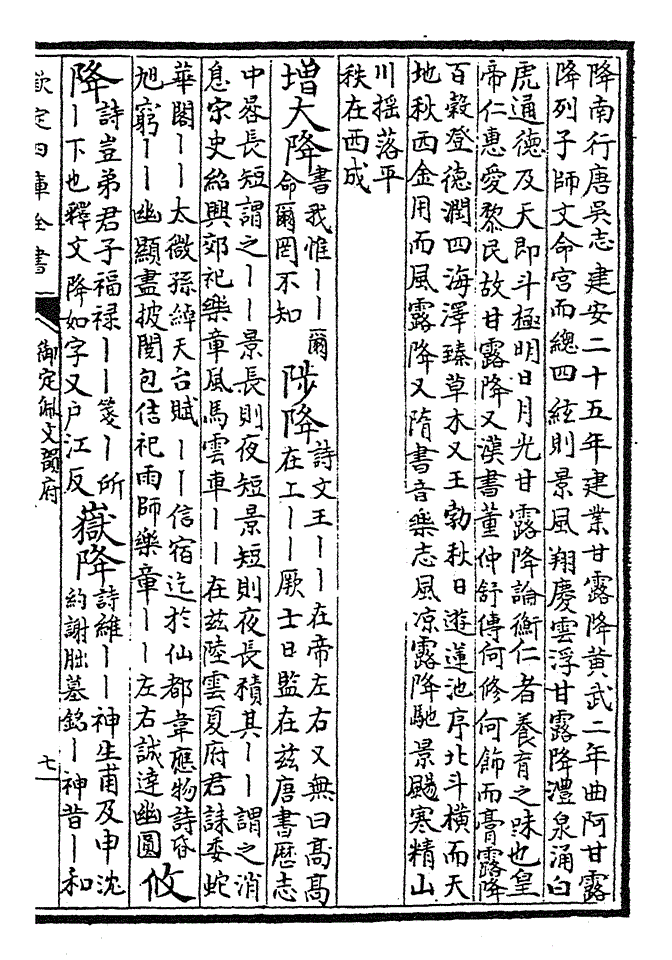 降南行唐吳志建安二十五年建業甘露降黄武二年曲阿甘露
降列子師文命宫而總四絃則景風翔慶雲浮甘露降澧泉涌白
虎通德及天即斗極明日月光甘露降論衡仁者養育之味也皇
帝仁惠愛黎民故甘露降又漢書董仲舒傳何修何飾而膏露降
百穀登德潤四海澤臻草木又王勃秋日遊蓮池序北斗横而天
地秋西金用而風露降又隋書音樂志風凉露降馳景颺寒精山
川揺落平
秩在西成
增大降書我惟丨丨爾
命爾罔不知
陟降詩文王丨丨在帝左右又無曰髙髙
在上丨丨厥士日監在兹唐書厯志
中晷長短謂之丨丨景長則夜短景短則夜長積其丨丨謂之消
息宋史紹興郊祀樂章風馬雲車丨丨在兹陸雲夏府君誄委蛇
華閣丨丨太微孫綽天台賦丨丨信宿迄於仙都韋應物詩昏
旭窮丨丨幽顯盡披閲包佶祀雨師樂章丨丨左右誠達幽圓
攸
降詩豈弟君子福禄丨丨箋丨所
丨下也釋文降如字又户江反
嶽降詩維丨丨神生甫及申沈
約謝朏墓銘丨神昔丨和
欽定四庫全書
御定佩文韻府
七